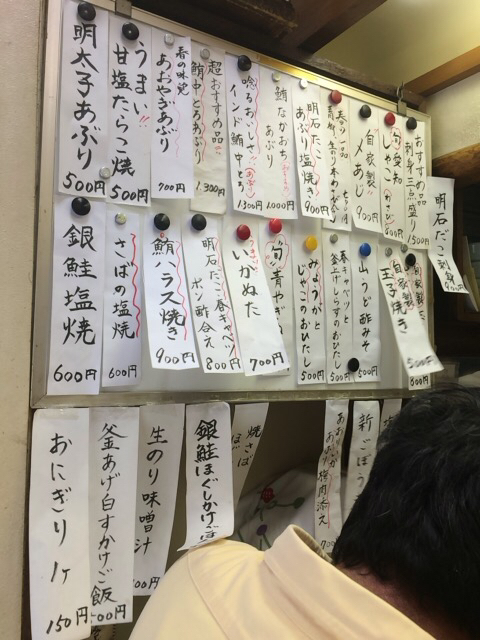 明太子あぶり 500円
うまい!! 甘塩たらこ焼 500円
春の味覚 あおやぎあぶり 700円
超おすすめ品!! 鮪中とろあぶり 1.300円
唸るおいしさ!! インド鮪中とろ 1300円
鮪なかおち あぶり 1.000円
明石たこ あぶり塩焼 900円
春の一品
自家製!! 〆あじ 900円
旬 愛知 しゃこ わさび 800円
おすすめ品 刺身三点盛り 1500円
明石だこ刺身 900円
銀鮭塩焼 600円
さばの塩焼 600円
鮪ハラス焼き 900円
明石だこ春キャベツ ポン酢合え 800円
いかぬた
旬 青やぎ 700円
みょうがと じゃこのおひたし 500円
春キャベツと 釜上げしらすのおひたし 500円
山うど酢みそ
自家製 玉子焼き 500円
おにぎり 1ヶ 150円
釜あげ白すかけご飯
生のり味噌汁
銀鮭ほぐしかけご
焼さば
新ごぼう